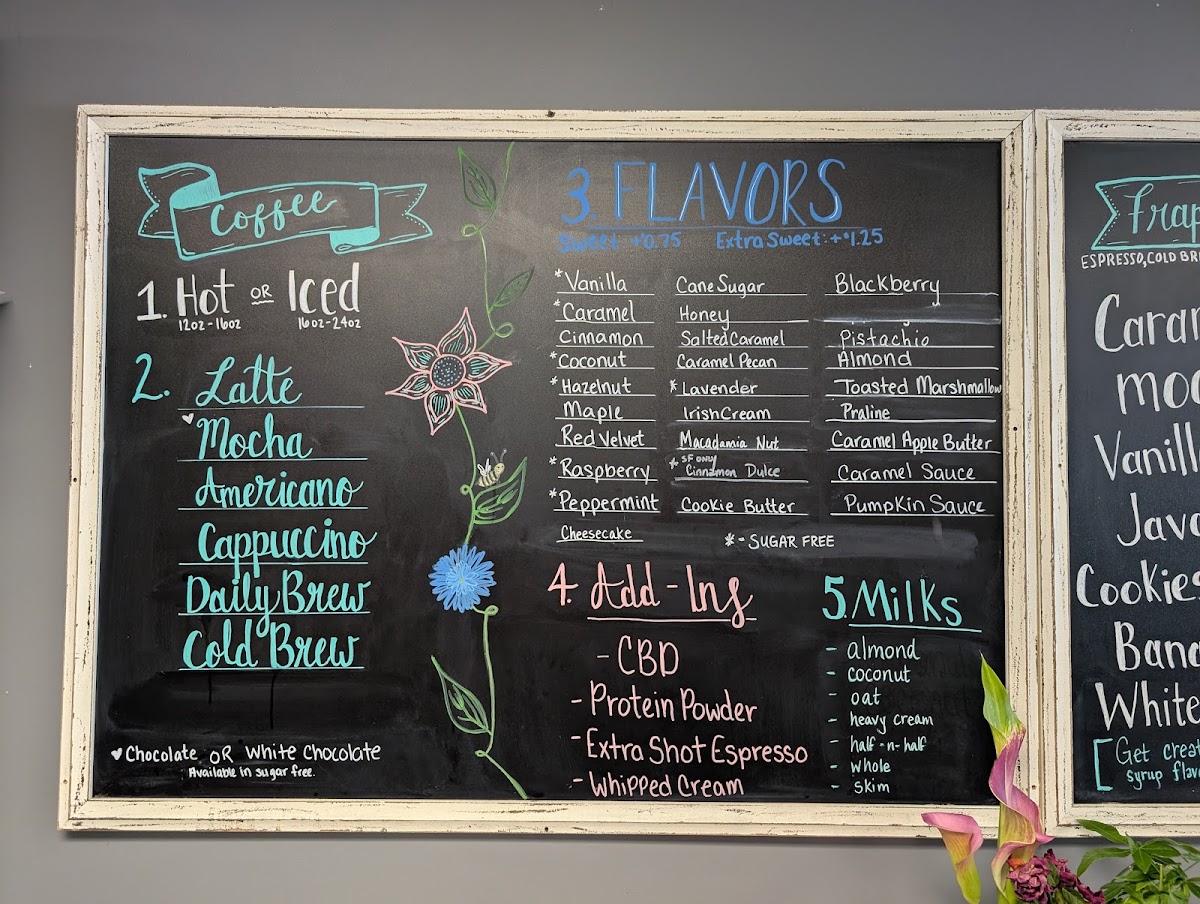 Coffee
1. Hot OR Iced
12oz-16oz 16oz-24oz
2. Latte
♥Mocha
Americano
Cappuccino
Daily Brew
Cold Brew
♥Chocolate OR White Chocolate
Available in sugar free.
3. FLAVORS
Sweet +$0.75 Extra Sweet: +$1.25
*Vanilla
*Caramel
Cinnamon
*Coconut
*Hazelnut
Maple
Red Velvet
*Raspberry
*Peppermint
Cheesecake
Cane Sugar
Honey
Salted Caramel
Caramel Pecan
*Lavender
Irish Cream
Macadamia Nut
*SF ONLY
Cinnamon Dulce
Cookie Butter
Blackberry
Pistachio
Almond
Toasted Marshmallow
Praline
Caramel Apple Butter
Caramel Sauce
Pumpkin Sauce
* - SUGAR FREE
4. Add-Ins
- CBD
- Protein Powder
- Extra Shot Espresso
- Whipped Cream
5. Milks
- almond
- coconut
- oat
- heavy cream
- half-n-half
- whole
- skim
Frap
ESPRESSO, COLD BR
Caram
moc
Vanill
Java
Cookies
Bana
White
Get creat
syrup flav